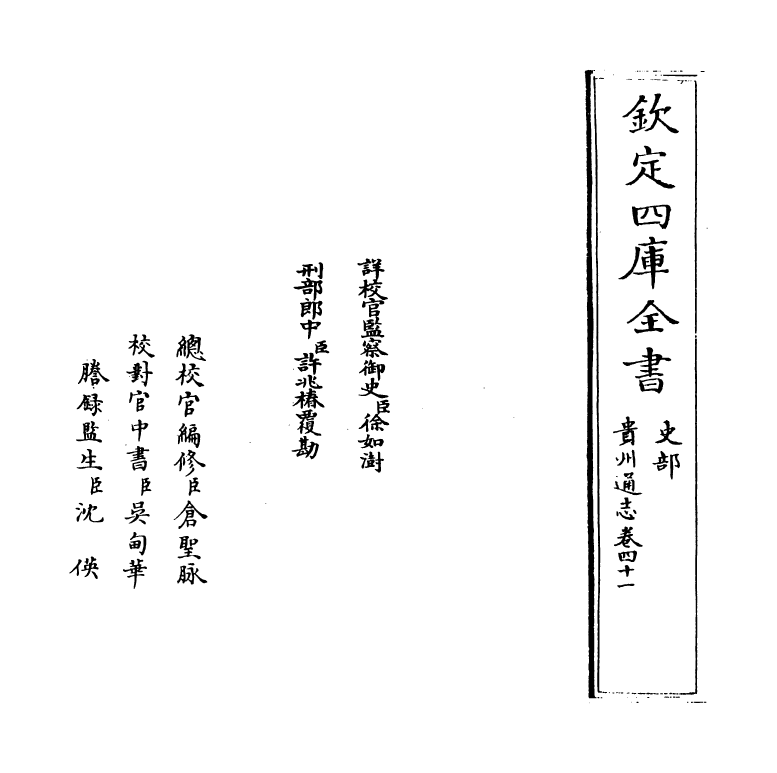 欽定四庫全書
史部
貴州通志卷四十一
詳校官監察御史臣徐如澍
刑部郎中臣許兆椿覆勘
總校官編修臣倉聖脉
校對官中書臣吳甸華
謄録監生臣沈 偀